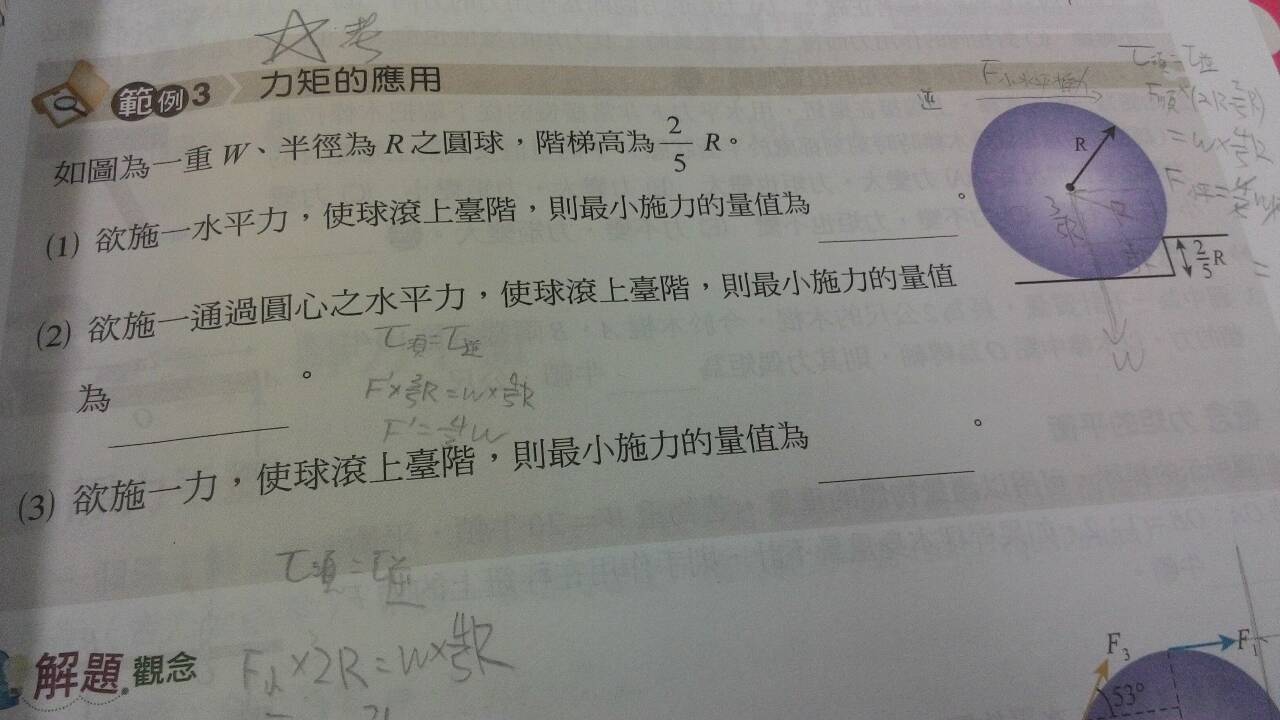 考
範例3 力矩的應用
如圖為一重 W、半徑為 R 之圓球，階梯高為 2/5 R。
(1) 欲施一水平力，使球滾上臺階，則最小施力的量值為＿＿＿＿。
(2) 欲施一通過圓心之水平力，使球滾上臺階，則最小施力的量值
為＿＿＿＿。
τ順=τ逆
F'×3/5R=W×4/5R
(3) 欲施一力，使球滾上臺階，則最小施力的量值為＿＿＿＿。
τ順=τ逆
×2R=W×4/5R
解題觀念
逆
τ順=τ逆
=W×4/5R
R
3/5R
R
2/5 R
W
F3
F1
53°